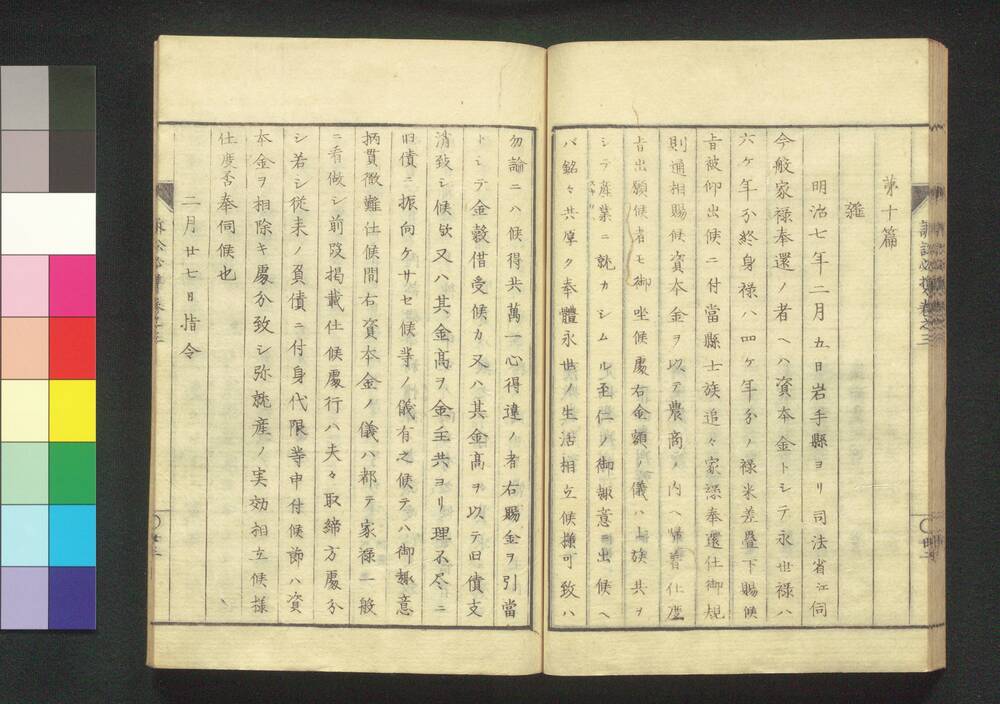 第十篇
雑
明治七年二月九日岩手縣ヨリ司法省江伺
今般家禄奉還ノ者ヘハ資本金トシテ永世禄ハ
六ケ年分終身禄ハ四ケ年分ノ禄米差疊下賜候
旨被仰出候ニ付當縣士族追々家禄奉還仕御規
則通相賜候資本金ヲ以テ農商ノ内ヘ帰着仕度
旨出願候者モ御坐候處右金額ノ儀ハ士族共ヲ
シテ産業ニ就カシムル至仁ノ御趣意ニ出候ヘ
バ銘々共厚ク奉體永世ノ生活相立候様可致ハ
勿論ニハ候得共萬一心得違ノ者右賜金ヲ引當
トシテ金穀借受候カ又ハ其金高ヲ以テ旧債支
消致シ候欤又ハ其金高ヲ金主共ヨリ理不尽ニ
旧債ニ振向ケサセ候等ノ儀有之候テハ御趣意
柄貫徹難仕候間右資本金ノ儀ハ都テ家禄一般
ニ看做シ前段掲載仕候處行ハ夫々取締方處分
シ若シ従来ノ負債ニ付身代限等申付候節ハ資
本金ヲ相除キ處分致シ弥就産ノ実効相立候様
仕度否奉伺候也
二月廿七日指令